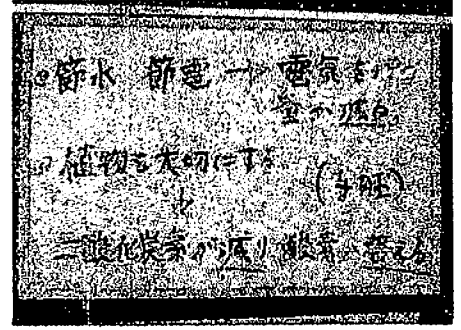 節水 節電 → 電気を使う
量の減る。
植物を大切にする
↓
二酸化炭素が減り 酸素が増える